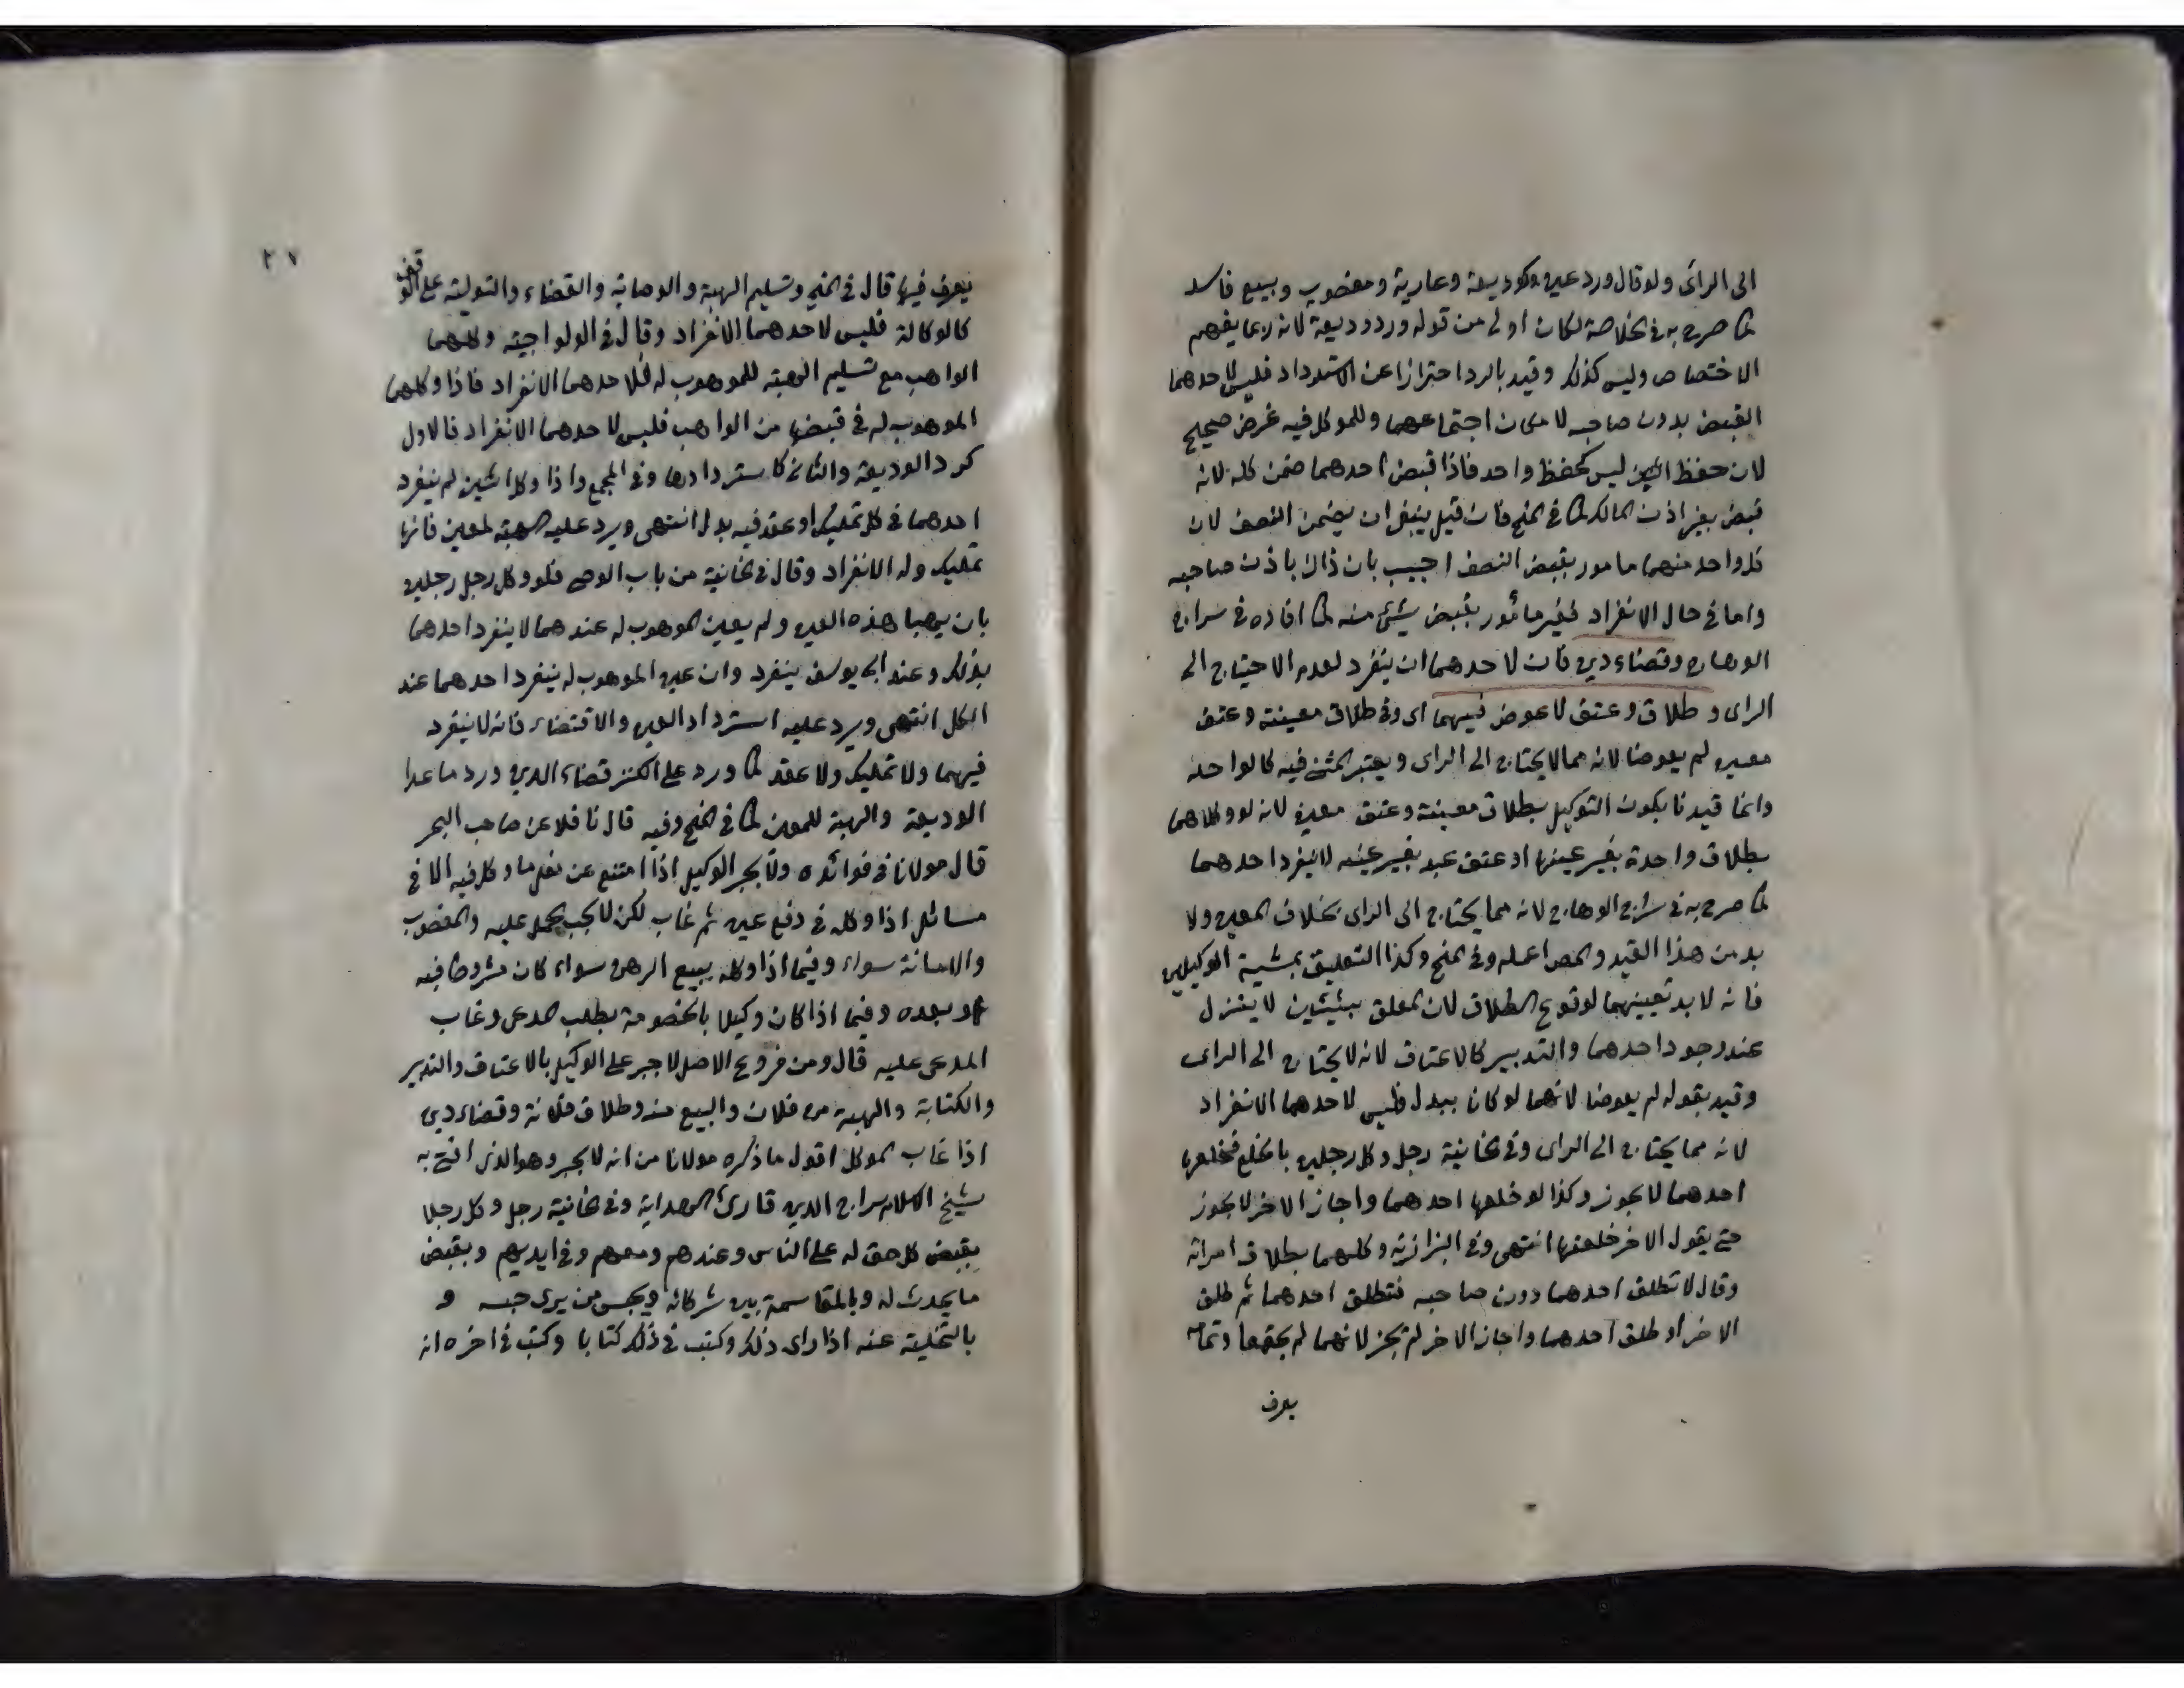 الى الراى ولو قال ورد عين كوديعة وعارية ومغصوب وبيع فاسد
كما صرح به فى الخلاصة لكان اولى من قوله ورد وديعة لانه ربما يفهم
الاختصاص وليس كذلك وقيد بالرد احترازا عن الاسترداد فليس لاحدهما
القبض بدون صاحبه لامكان اجتماعهما وللموكل فيه غرض صحيح
لان حفظ اثنين ليس كحفظ واحد فاذا قبض احدهما ضمن كله لانه
قبض بغير اذن المالك كما فى المنح فان قيل ينبغى ان يضمن النصف لان
كل واحد منهما مامور بقبض النصف اجيب بان ذاك باذن صاحبه
واما فى حال الانفراد فغير مأمور بقبض شئ منه كما افاده فى سراج
الوهاج وقضاء دين فان لاحدهما ان ينفرد لعدم الاحتياج الى
الراى و طلاق وعتق لا عوض فيهما اى وفى طلاق معينة وعتق
معين لم يعوضا لانه مما لا يحتاج الى الراى ويعتبر المثنى فيه كالواحد
وانما قيدنا بكون التوكيل بطلاق معينة وعتق معين لانه لو وكلاهما
بطلاق واحدة بغير عينها او عتق عبد بغير عينه لا ينفرد احدهما
كما صرح به فى سراج الوهاج لانه مما يحتاج الى الراى بخلاف المعين ولا
بد من هذا القيد والمص اهمله وفى المنح وكذا التعليق بمشية الوكيلين
فانه لا بد تعيينهما لوقوع الطلاق لان المعلق بشيئين لا ينزل
عند وجود احدهما والتدبير كالاعتاق لانه لا يحتاج الى الراى
وقيد بقوله لم يعوضا لانهما لو كانا ببدل فليس لاحدهما الانفراد
لانه مما يحتاج الى الراى وفى الخانية رجل وكل رجلين بالخلع فخلعها
احدهما لا يجوز وكذا لو خلعها احدهما واجاز الاخر لا يجوز
حتى يقول الاخر خلعتها انتهى وفى البزازية وكلهما بطلاق امراته
وقال لا تطلق احدهما دون صاحبه فتطلق احدهما ثم طلق
الاخر او طلق احدهما واجاز الاخر لم يجز لانهما لم يجتمعا وتمامه
يعرف
٢٧
يعرف فيها قال فى المنح وتسليم الهبة والوصاية والقضاء والتولية على الوقف
كالوكالة فليس لاحدهما الانفراد وقال فى الولواجية وكلهما
الواهب مع تسليم الهبة للموهوب له فلاحدهما الانفراد فاذا وكلهما
الموهوب له فى قبضها من الواهب فليس لاحدهما الانفراد فالاول
كرد الوديعة والثانى كاستردادها وفى المجمع واذا وكل اثنين لم ينفرد
احدهما فى كل تمليك او عقد فيه بدل انتهى ويرد عليه الهبة لمعين فانها
تمليك وله الانفراد وقال فى الخانية من باب الوصى فلو وكل رجل رجلين
بان يهبا هذه العين ولم يعين الموهوب له عندهما لا ينفرد احدهما
بذلك وعند ابى يوسف ينفرد وان عين الموهوب له ينفرد احدهما عند
الكل انتهى ويرد عليه استرداد العين والاقتضاء فانه لا ينفرد
فيهما ولا تمليك ولا عقد كما ورد على الكنز قضاء الدين ورد ما عدا
الوديعة والهبة للمعين كما فى المنح وفيه قال ناقلا عن صاحب البحر
قال مولانا فى فوائده ولا يجبر الوكيل اذا امتنع عن فعل ما وكل فيه الا فى
مسائل اذا وكله فى دفع عين ثم غاب لكن لا يجب الحمل عليه والمغصوب
والامانة سواء وفيما اذا وكله ببيع الرهن سواء كان مشروطا فيه
او بعده وفيما اذا كان وكيلا بالخصومة بطلب المدعى وغاب
المدعى عليه قال ومن فروع الاصل لا جبر على الوكيل بالاعتاق والتدبير
والكتابة والهبة من فلان والبيع منه وطلاق فلانة وقضاء دين
اذا غاب الموكل اقول ما ذكره مولانا من انه لا يجبر وهو الذى افتى به
شيخ الاسلام سراج الدين قارئ الهداية وفى الخانية رجل وكل رجلا
بقبض كل حق له على الناس وعندهم ومعهم وفى ايديهم وبقبض
ما يحدث له وبالمقاسمة بين شركائه ويحبس من يرى حبسه و
بالتخلية عنه اذا راى ذلك وكتب فى ذلك كتابا وكتب فى اخره انه